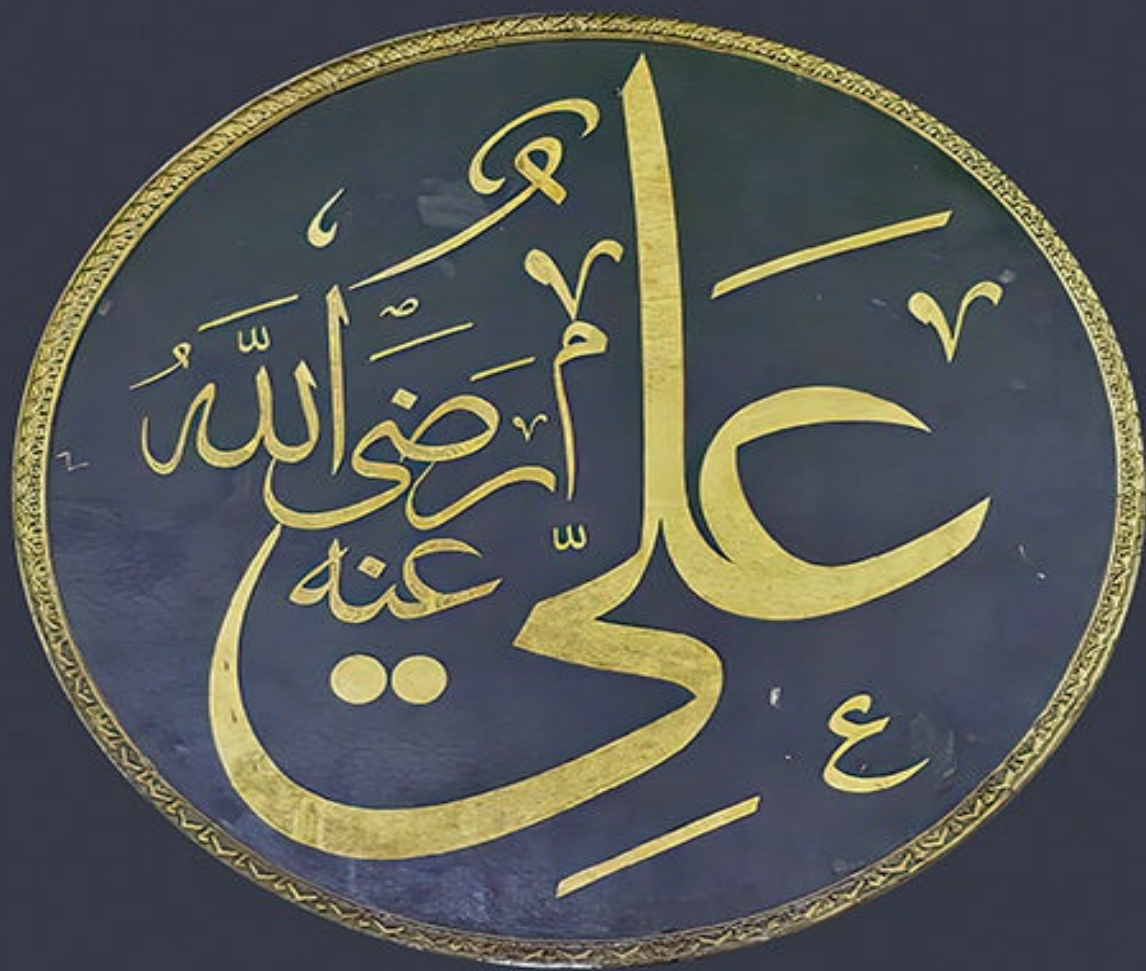 عَلِيّ
رَضِىَ اللّٰهُ
عنه